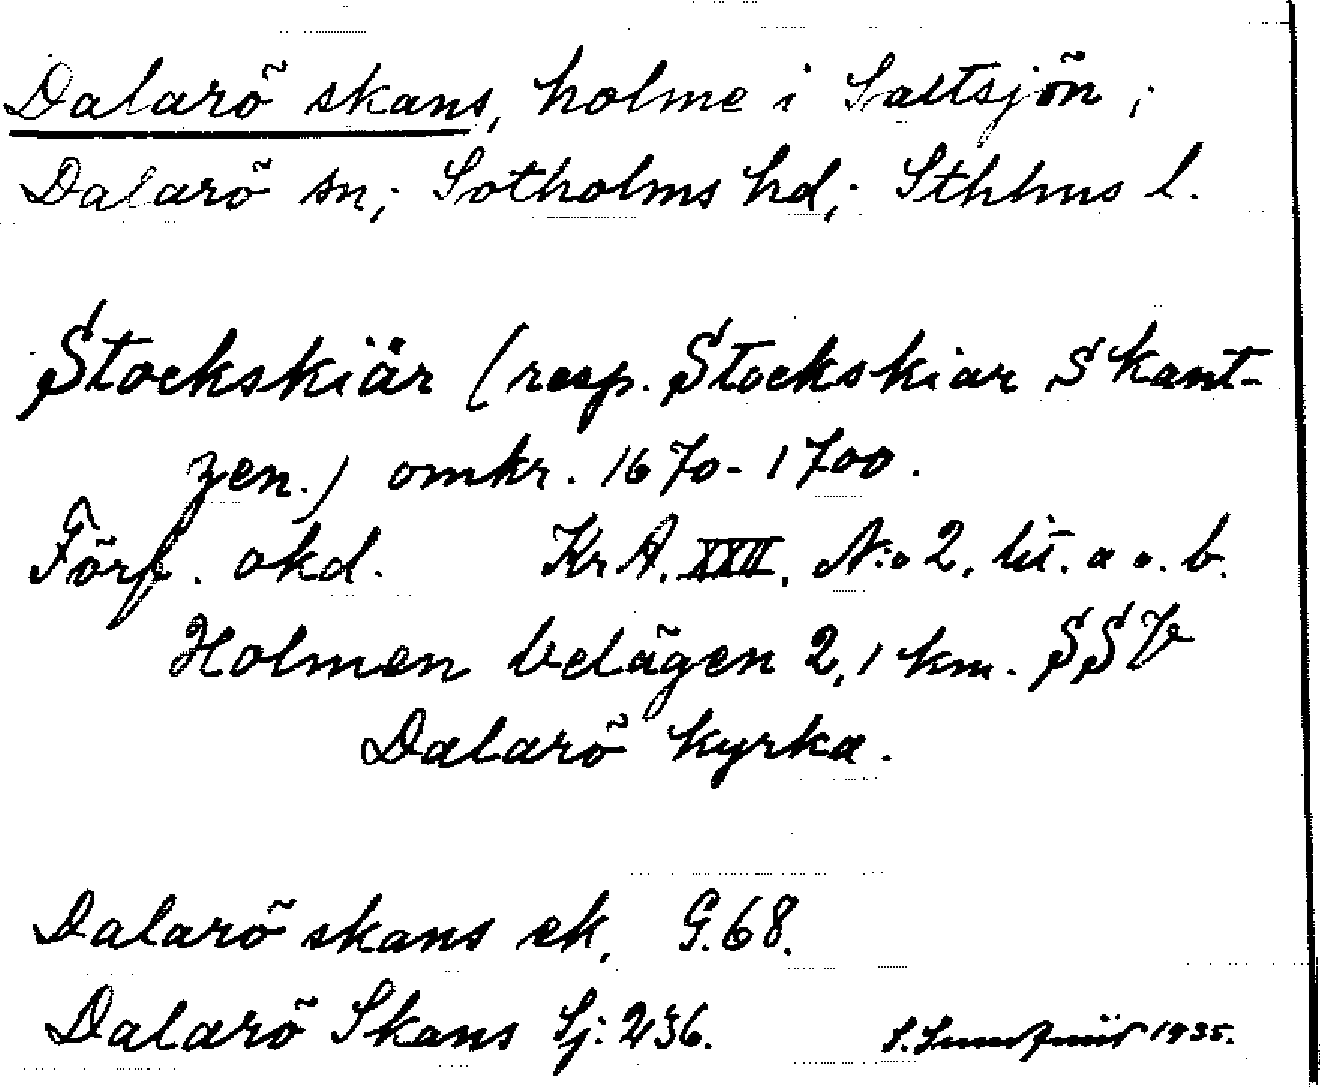 Dalarö skans, holme i Saltsjön;
Dalarö sn; Sotholms hd; Sthlms l.
Stockskiär (resp. Stockskiar Skant-
zen.) omkr. 1670-1700.
Förf. okd. Kr A. XXII. N:o 2. lit. a o. b.
Holmen belägen 2,1 km. SSV
Dalarö kyrka.
Dalarö skans ek. G.68.
Dalarö Skans Sj: 236.
1935.